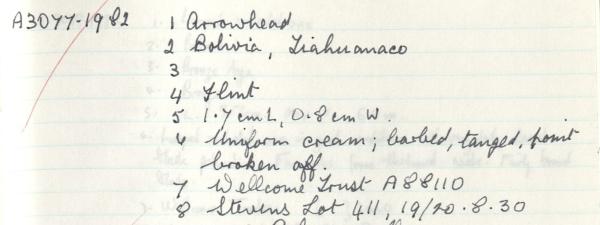 A3077-1982 1 Arrowhead
2 Bolivia, Tiahuanaco
3
4 Flint
5 1.7 cm L, 0.8 cm W
4 Uniform cream; barbed, tanged, point
broken off.
7 Wellcome Trust A88110
8 Stevens Lot 411, 19/20.8.30